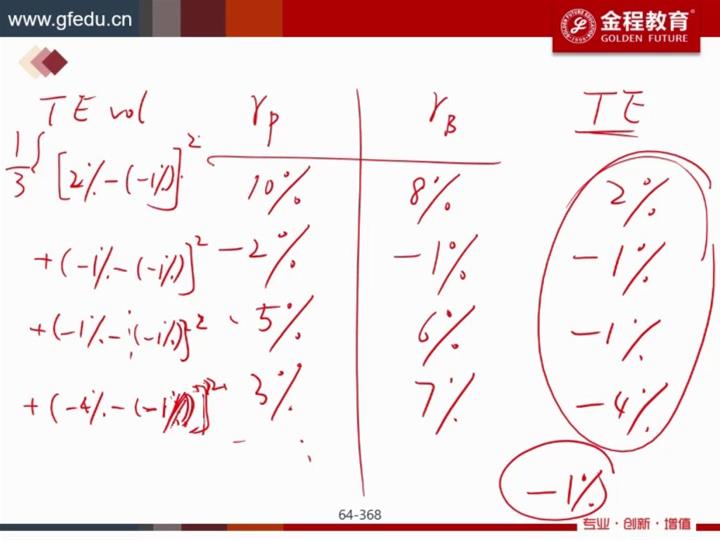 www.gfedu.cn
金程教育®
GOLDEN FUTURE
TE vol r_P r_B TE
1/3 { [2%-(-1%)]² 10% 8% 2%
+(-1%-(-1%)]² -2% -1% -1%
+(-1%-(-1%)]² 5% 6% -1%
+(-4%-(-1%)]² 3% 7% -4%
-1%
64-368
专业·创新·增值